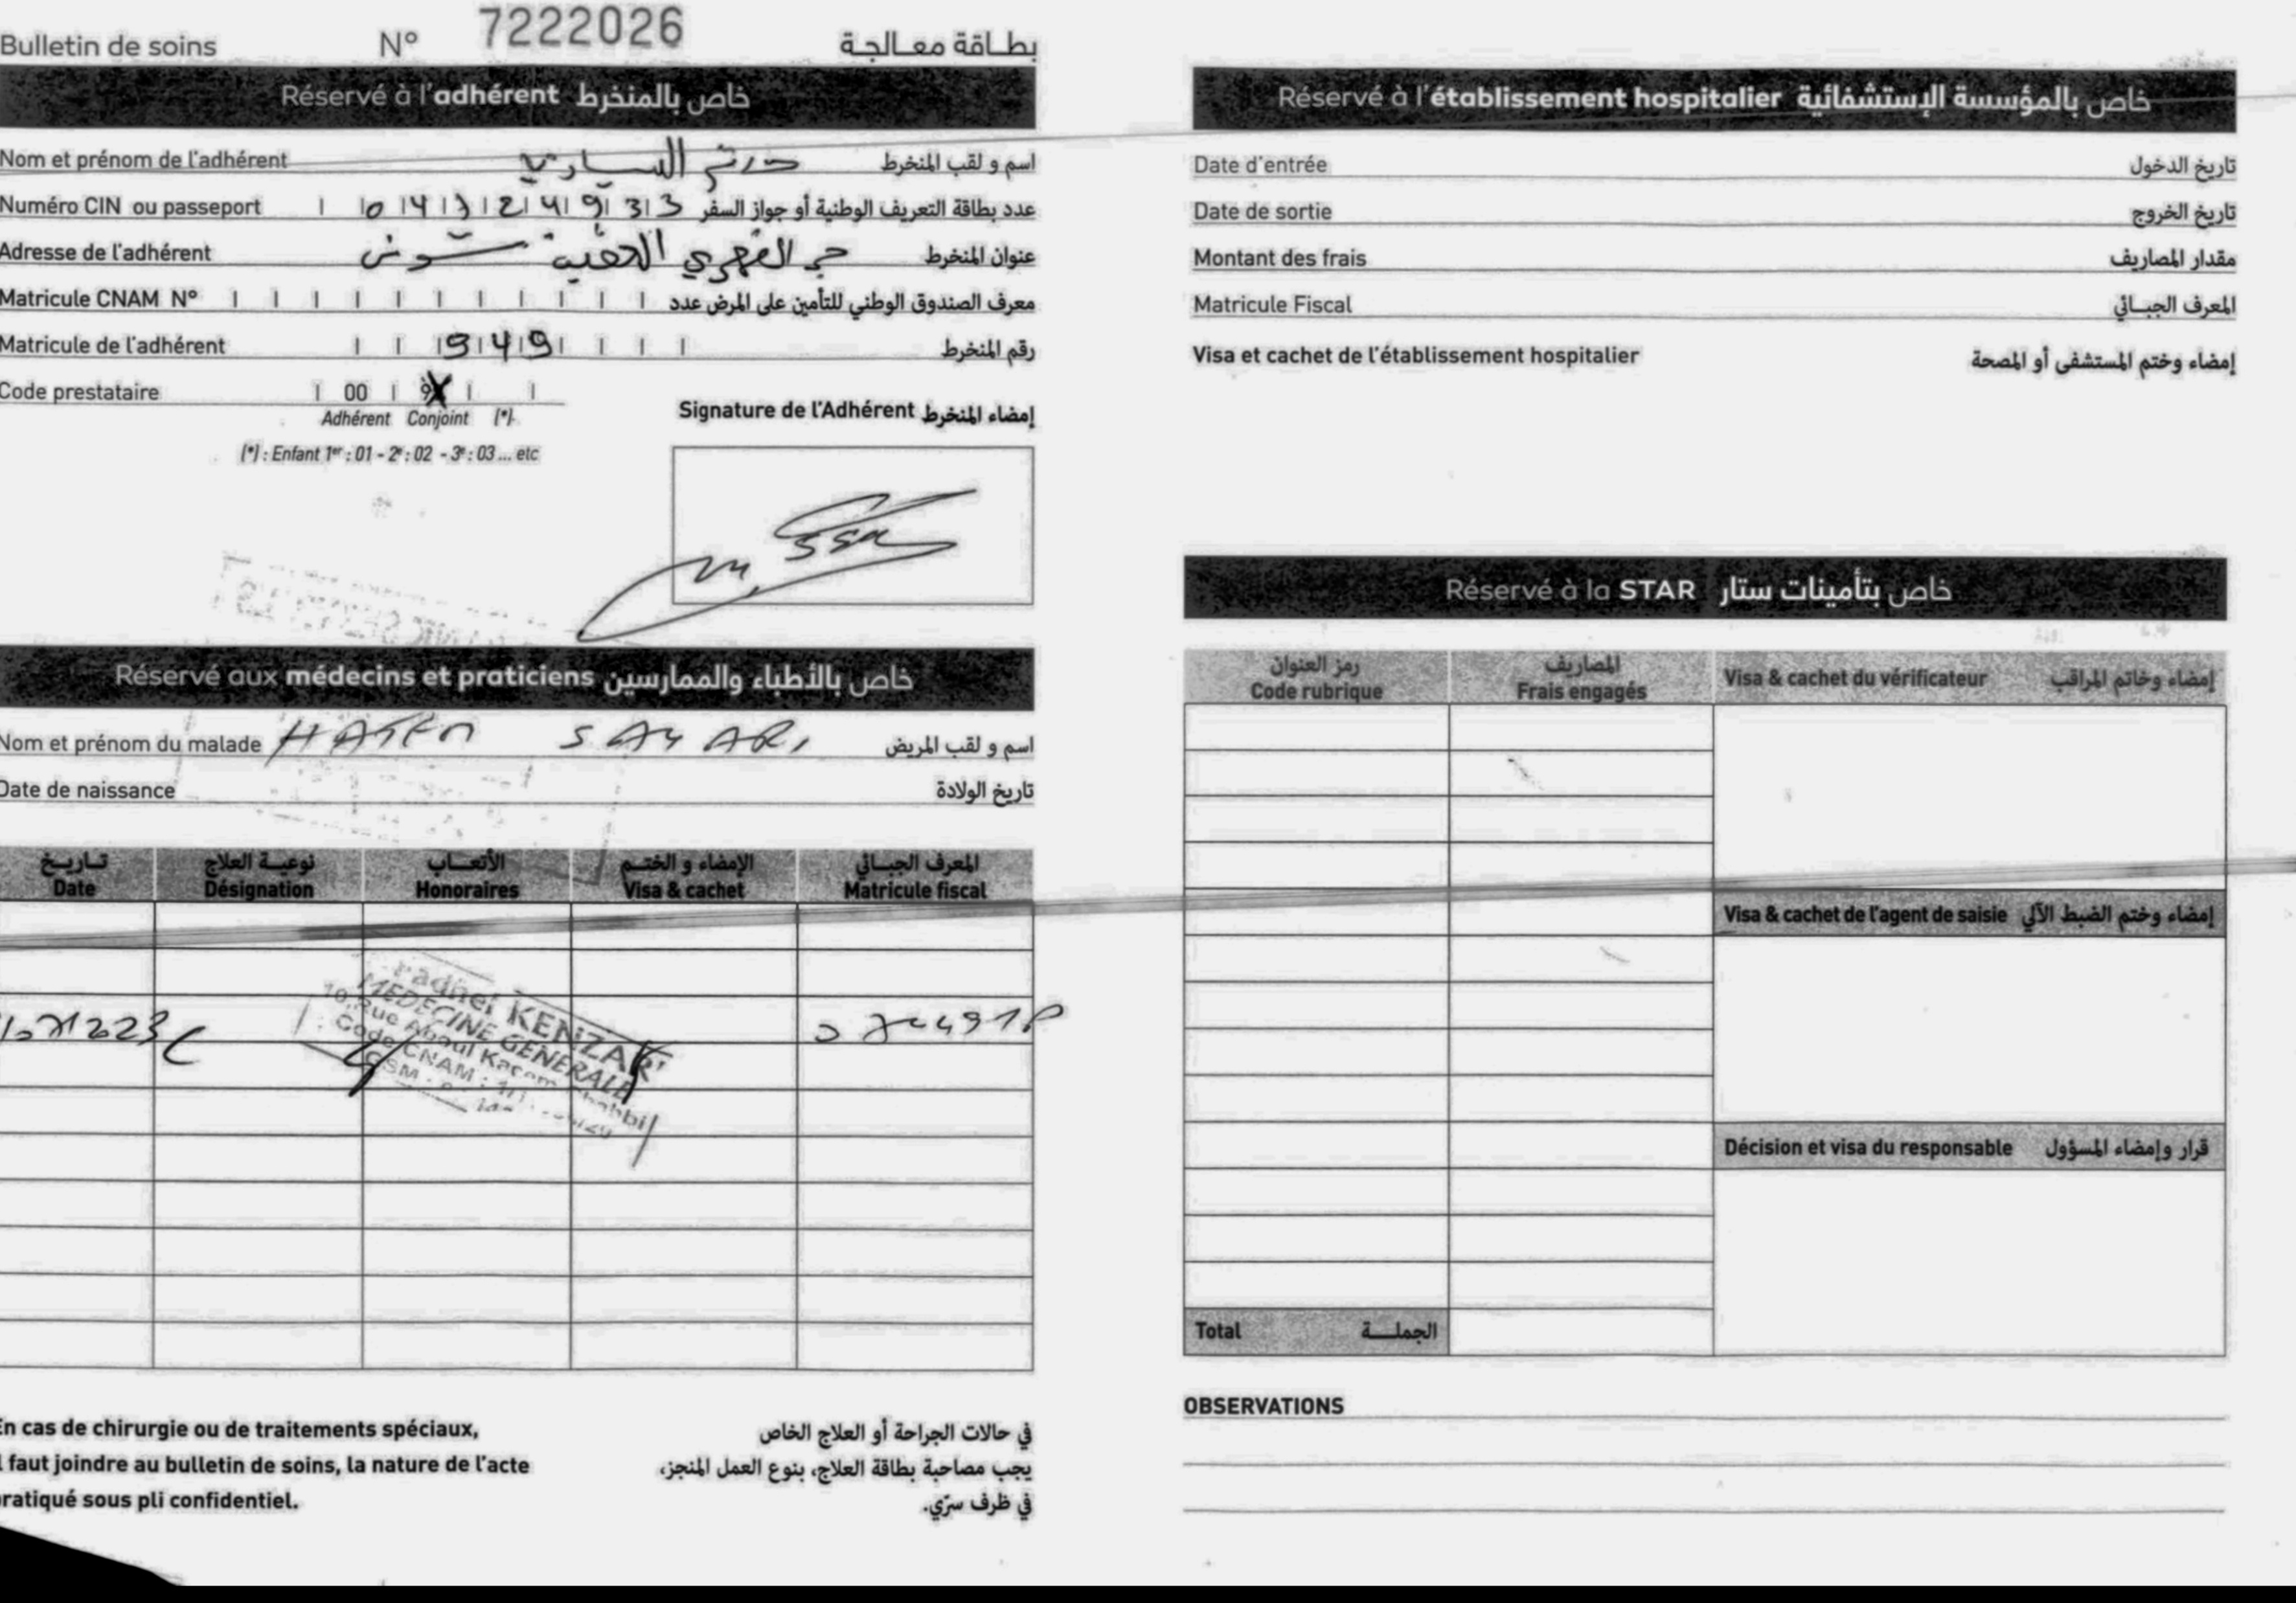 Bulletin de soins N° 7222026 بطاقة معالجة
Réservé à l'adhérent خاص بالمنخرط
Nom et prénom de l'adhérent حاتم السياري اسم و لقب المنخرط
Numéro CIN ou passeport عدد بطاقة التعريف الوطنية أو جواز السفر
Adresse de l'adhérent تونس عنوان المنخرط
Matricule CNAM N° معرف الصندوق الوطني للتأمين على المرض عدد
Matricule de l'adhérent 949 رقم المنخرط
Code prestataire 00
Adhérent Conjoint (*)
(*) : Enfant 1er : 01 - 2e : 02 - 3e : 03 ... etc
Signature de l'Adhérent إمضاء المنخرط
Réservé aux médecins et praticiens خاص بالأطباء والممارسين
Nom et prénom du malade HATEM SAYARI اسم و لقب المريض
Date de naissance تاريخ الولادة
تاريخ نوعية العلاج الأتعاب الإمضاء و الختم المعرف الجبائي
Date Désignation Honoraires Visa & cachet Matricule fiscal
C
radhei KENZARI
MEDECINE GENERALE
10, Rue Aboul Kacem Chabbi
Code CNAM :
GSM :
En cas de chirurgie ou de traitements spéciaux,
il faut joindre au bulletin de soins, la nature de l'acte
pratiqué sous pli confidentiel.
في حالات الجراحة أو العلاج الخاص
يجب مصاحبة بطاقة العلاج، بنوع العمل المنجز،
في ظرف سرّي.
Réservé à l'établissement hospitalier خاص بالمؤسسة الإستشفائية
Date d'entrée تاريخ الدخول
Date de sortie تاريخ الخروج
Montant des frais مقدار المصاريف
Matricule Fiscal المعرف الجبائي
Visa et cachet de l'établissement hospitalier إمضاء وختم المستشفى أو المصحة
Réservé à la STAR خاص بتأمينات ستار
رمز العنوان المصاريف
Code rubrique Frais engagés Visa & cachet du vérificateur إمضاء وخاتم المراقب
Visa & cachet de l'agent de saisie إمضاء وختم الضبط الآلي
Décision et visa du responsable قرار وإمضاء المسؤول
Total الجملة
OBSERVATIONS